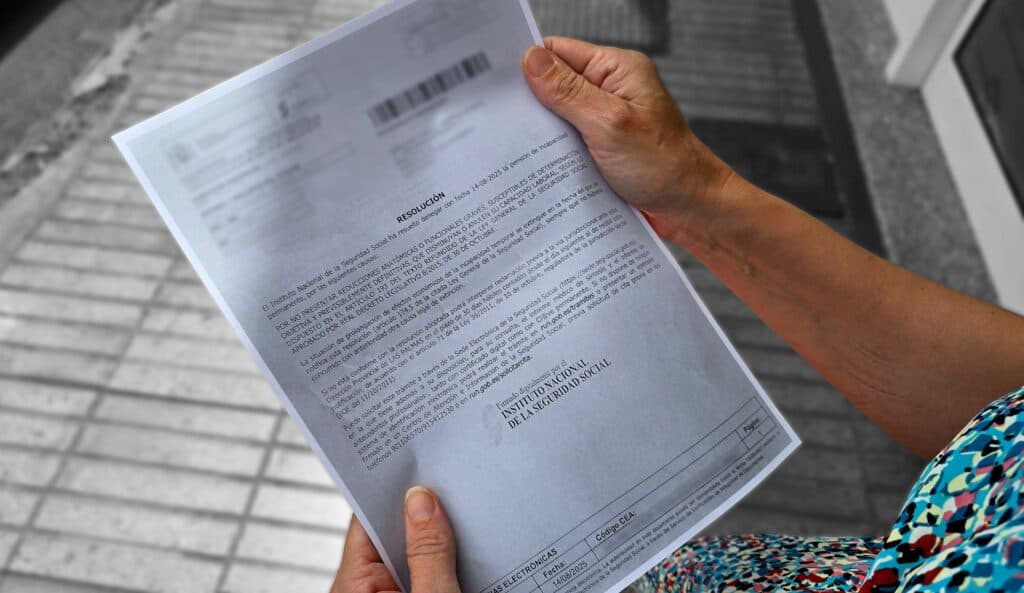 RESOLUCIÓN
El Instituto Nacional de la Seguridad Social ha resuelto denegar con fecha 14-08-2025 la pensión de incapacidad
permanente, por las siguientes causas:
POR NO PRESENTAR REDUCCIONES ANATÓMICAS O FUNCIONALES GRAVES, SUSCEPTIBLES DE DETERMINACIÓN
OBJETIVA Y PREVISIBLEMENTE DEFINITIVAS, QUE DISMINUYAN O ANULEN SU CAPACIDAD LABORAL, SEGÚN LO
DISPUESTO EN EL ARTÍCULO 193 DEL TEXTO REFUNDIDO DE LA LEY GENERAL DE LA SEGURIDAD SOCIAL,
APROBADO POR REAL DECRETO LEGISLATIVO 8/2015, DE 30 DE OCTUBRE.
La situación de prolongación de efectos económicos de la incapacidad temporal se extingue en la fecha en que se
notifica esta resolución (artículo 174.5 de la citada Ley General de la Seguridad Social), siempre que no hubiera
concurrido con anterioridad otra causa legal de extinción.
Si no está conforme con la resolución adoptada podrá interponer reclamación previa a la vía jurisdiccional ante esta
Dirección Provincial de LAS PALMAS en el plazo de 30 días hábiles contados desde el día siguiente al de recibir esta
notificación, de acuerdo con el artículo 71 de la Ley 36/2011, de 10 de octubre, reguladora de la jurisdicción social
(BOE de 11/10/2011).
Puede solicitar este trámite a través de la Sede Electrónica de la Seguridad Social
en la que tiene además a su disposición, para su consulta, el informe médico de síntesis y el informe de
antecedentes profesionales, tanto con certificado digital como con Cl@ve permanente. Si no dispone de ningún
sistema de identificación electrónico podrá realizar el trámite en run.gob.es/tramites o presentar el ejemplar
firmado en el Centro de Atención e Información de la Seguridad Social, previa solicitud de cita previa en los
teléfonos 901106570/915412530 o en run.gob.es/solicitarcita.
Firmado digitalmente por el
INSTITUTO NACIONAL
DE LA SEGURIDAD SOCIAL
VAS ELECTRÓNICAS
Fecha:
14/08/2025
Código CEA:
Página: